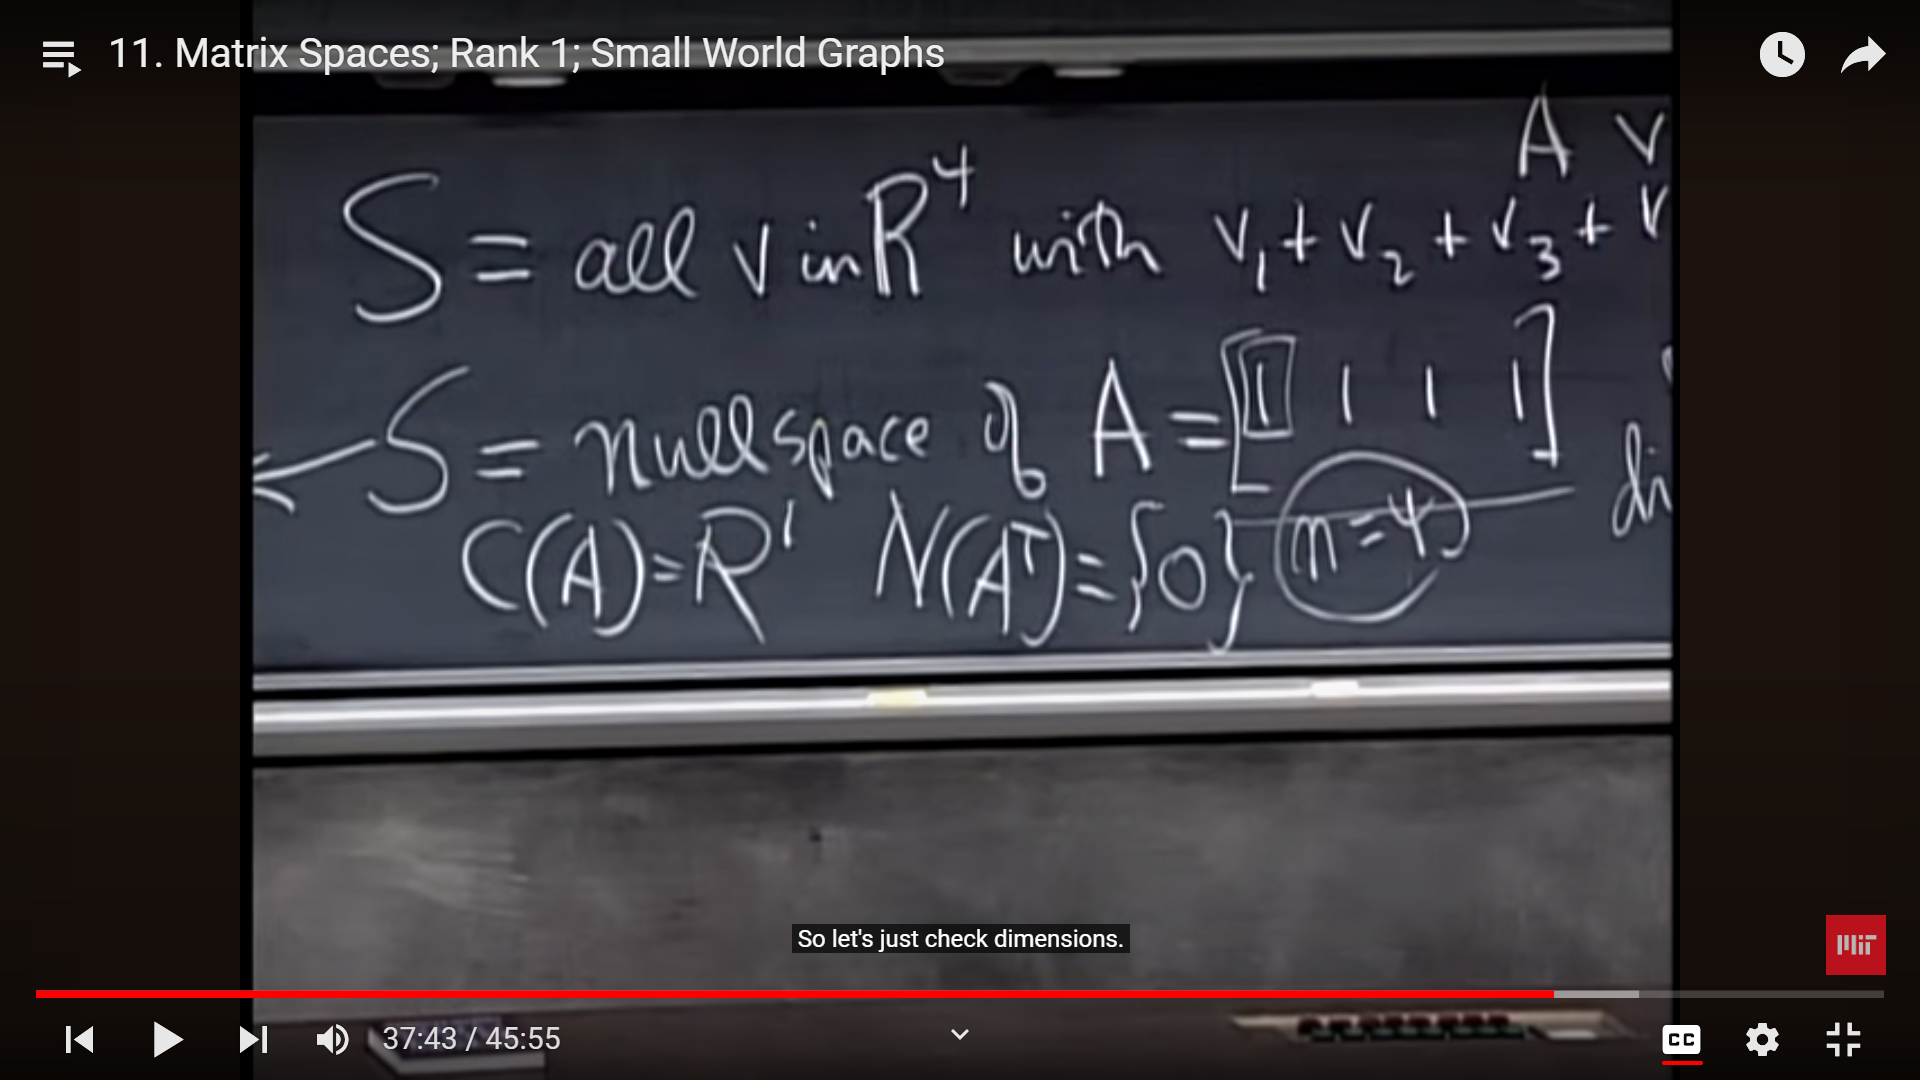 11. Matrix Spaces; Rank 1; Small World Graphs
A v
S = all v in R⁴ with v₁ + v₂ + v₃ + v
S = nullspace of A = [1 1 1 1]
C(A) = R¹ N(Aᵀ) = {0} n = 4 di
So let's just check dimensions.
MIT
37:43 / 45:55
CC